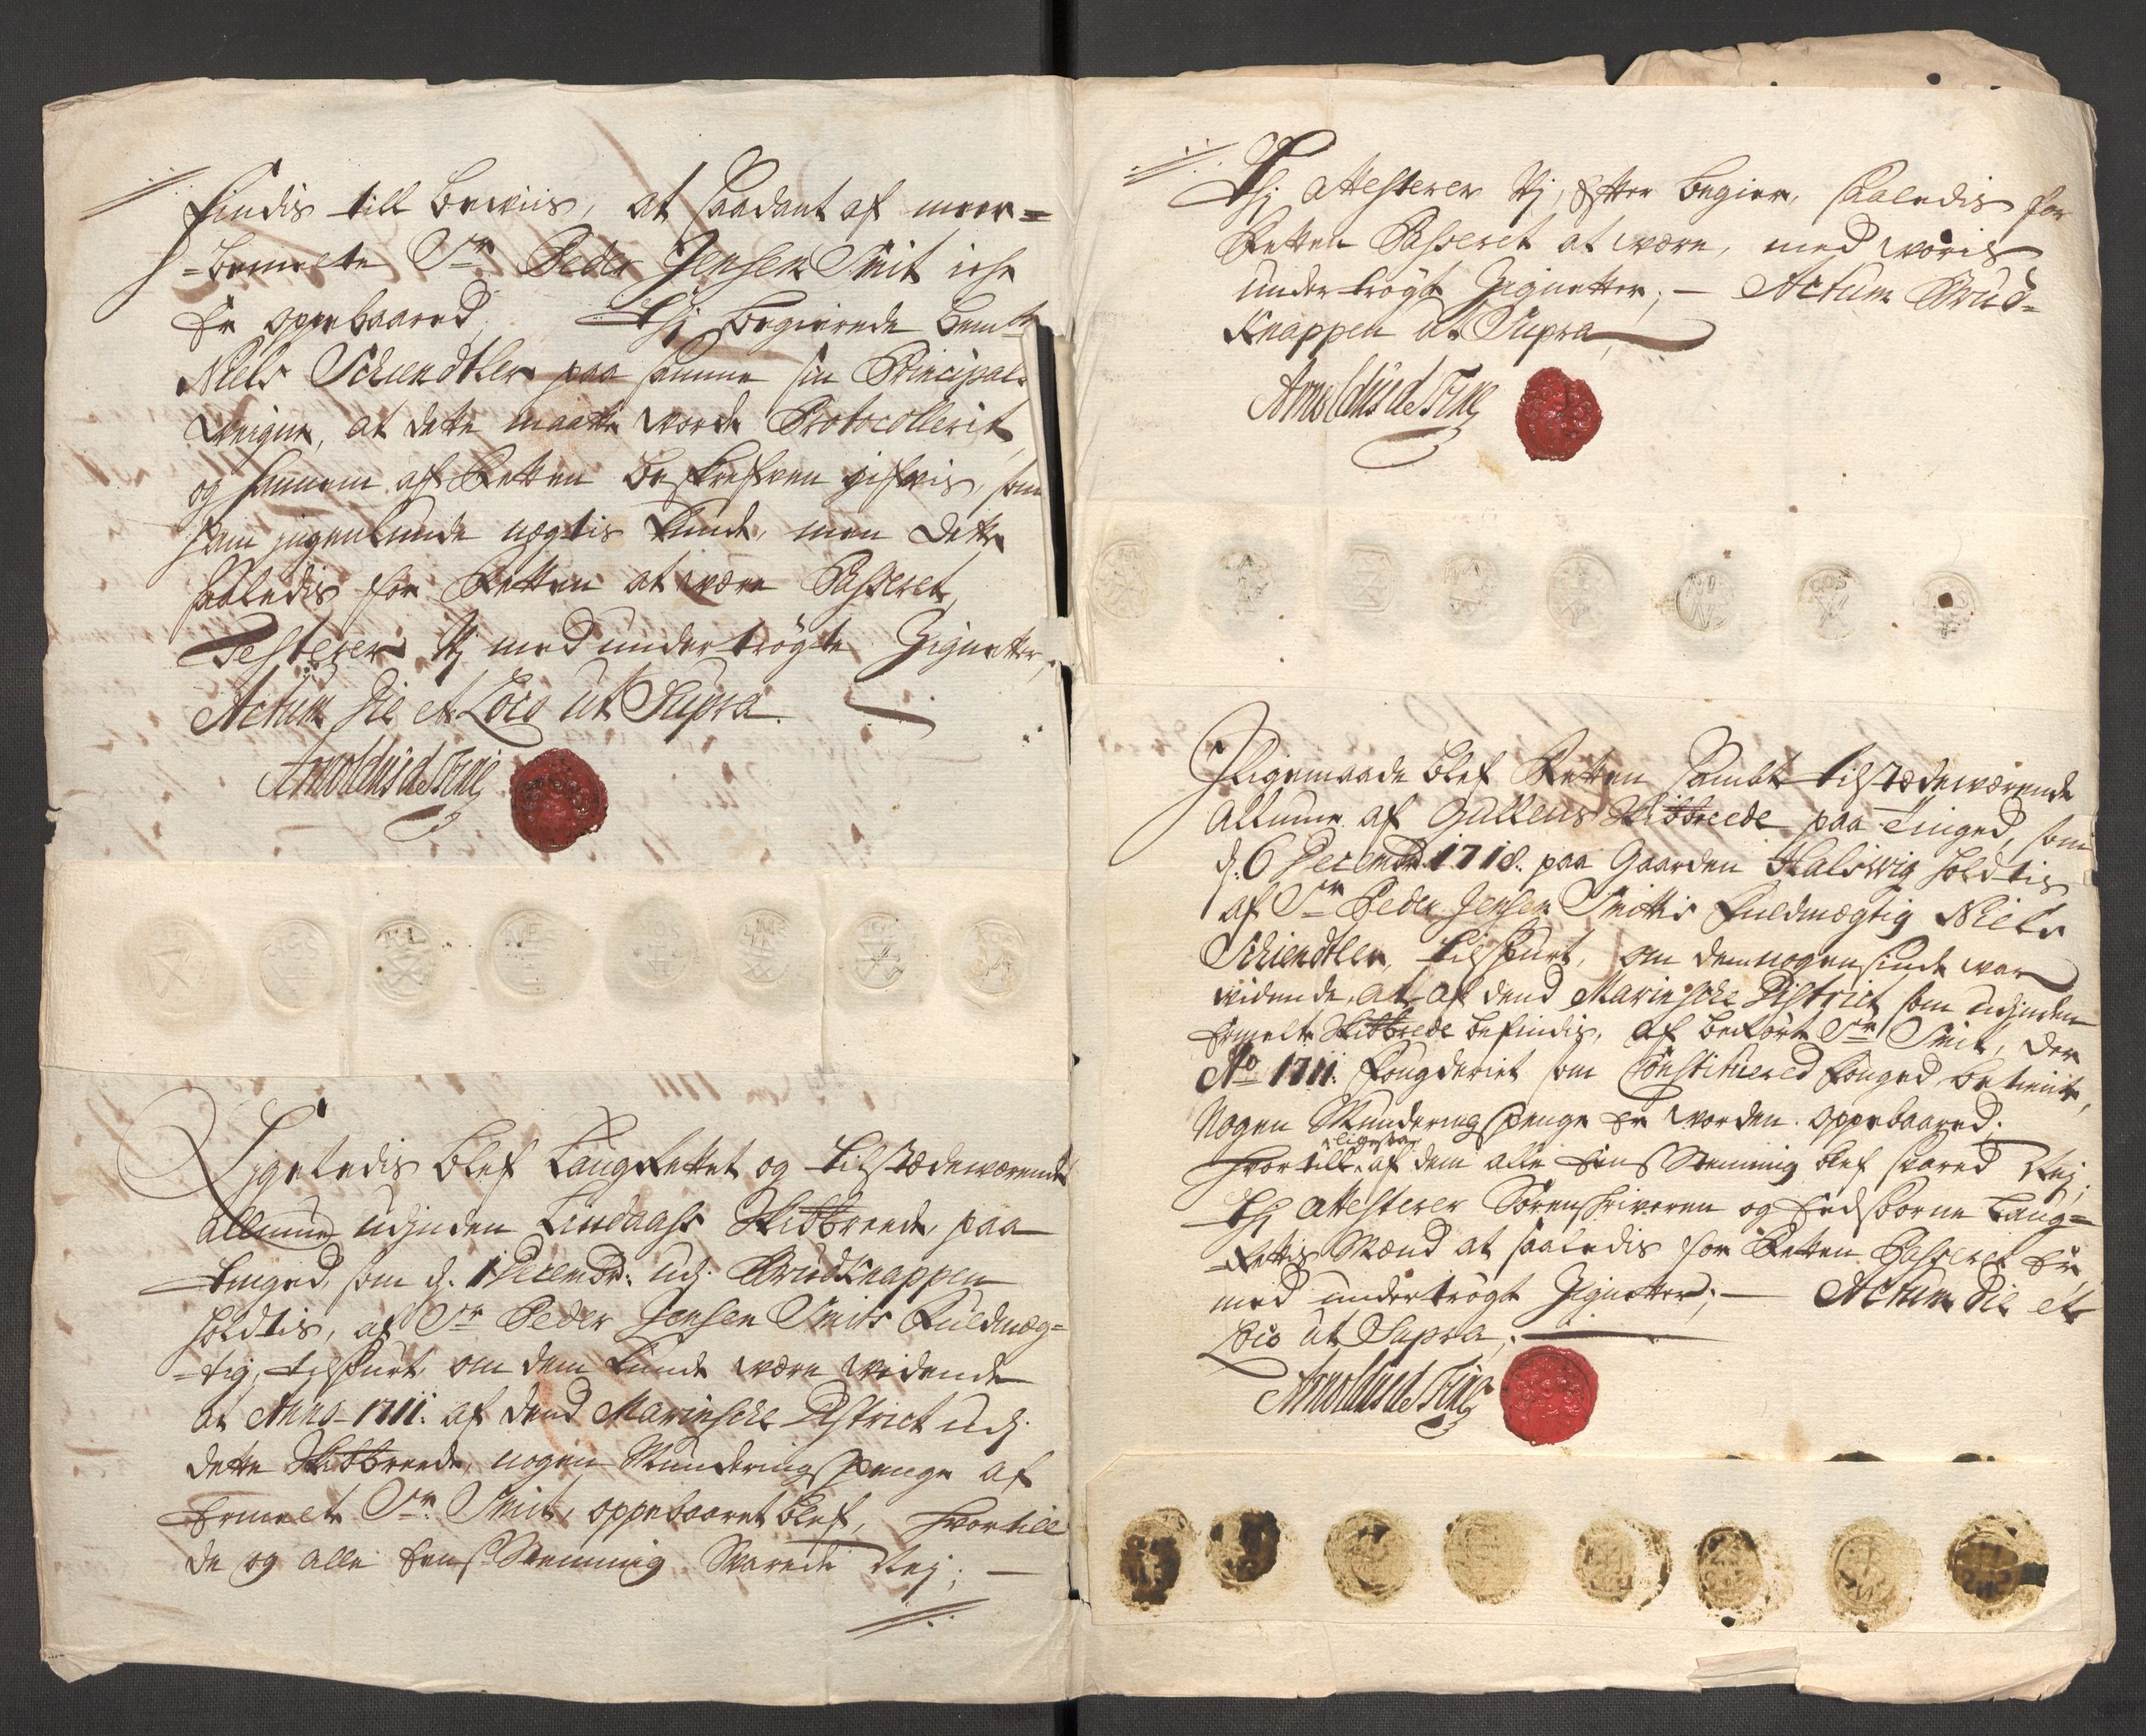 findis till beviis, at saadant af meer=
=bemelte Sr Peder Jensen Smit iche
Er oppebaared, Thj begierede bemte
Niels Schiendtler paa samme sin Principals
Weigne, at dette maatte worde Protocollerit
og hannem af Retten beskrefven gifvis, som
ham ingenlunde negtis kunde, men dette
saaledis for Retten at være Passeret,
Testerer Wj med undertrögte Zignetter,
Actum Die et Loco ut Supra.
Arnoldus de Fine
Ligeledis blef Laugrettet og tilstædeværende
Almue udj​nden Lindaass Skibbreede, paa
tinged, som d. 1 Decembr: udj Brudknappen
holdtis, af Sr Peder Jensen Smits Fuldmæg=
=tig, tilspurt, om dem kunde være vidende
at Anno 1711. af dend Marinsche District udj
dette Skibbreede, nogen Munderingspenge af
Ermelte Sr. Smit, oppebaaret blef, hvortill
de og alle Eensstemmig Svarede Nej; —
Thj attesterer Wj, Efter begier, saaledis for
Retten Passeret at være, med voris
undertrögte Zignetter; — Actum Brud=
Knappen ut Supra,
Arnoldus de Fine
Jligemaade blef Retten sambt tilstædeværende
Almue af Gullens Skibbreede paa Tinged, som
d. 6 Decembr. 1718. paa Gaarden Halsvig holdtis
af Sr Peder Jensen Smittis Fuldmegtig Niels
Schiendtler, tilspurt, om dem nogensinde var
vidende, at af dend Marinsche District som udjnden
Ermelte Skibbrede befindis, af berörte Sr Smit, der
Ao 1711. Fougderiet som Constituered Fouged betiente,
Nogen Munderingspenge Er worden oppebaared;
hvortill ligesaa af dem alle Eensstemmig blef svared Nej;
Thj attesterer Sorenskriveren og Eedsvorne Laug=
=Rettis Mænd at saaledis for Retten Passeret Er,
med undertrögte Zignetter; — Actum Die et
Loco ut Supra;
Arnoldus de Fine